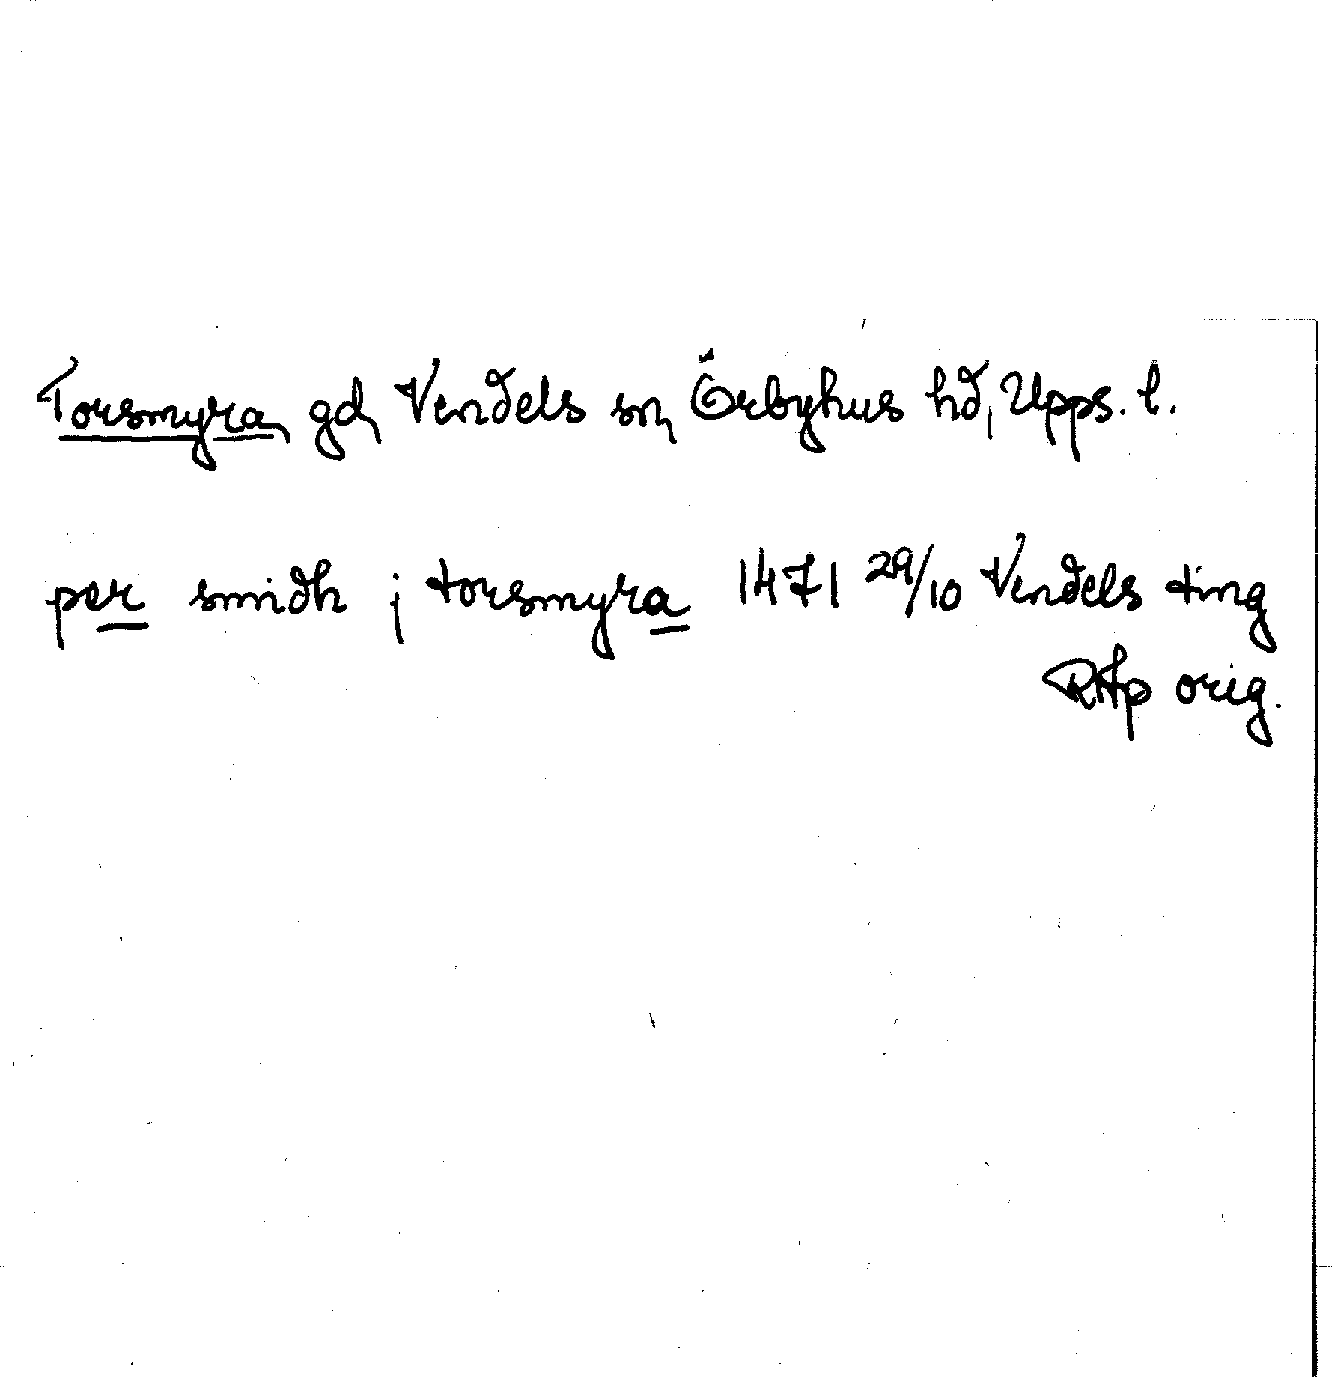 Torsmyra, gd, Vendels sn, Örbyhus hd, Upps. l.
per smidh j torsmyra 1471 29/10 Vendels ting
RAp orig.